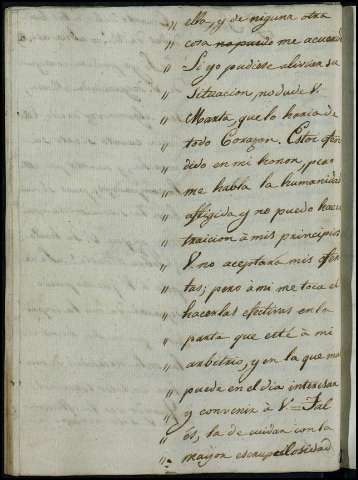 „ ella, y de niguna otra
„ cosa no puedo me acuerdo
„ Si yo pudiese aliviar su
„ situacion, no dude V.
„ Marta, que lo haria de
„ todo Corazon. Estoi ofen
„ dido en mi honor, pero
„ me habla la humanidad
„ afligida y no puedo hacer
„ traicion à mis principios
„ V. no aceptará mis ofer
„ tas; pero à mi me toca el
„ hacerlas efectivas en la
„ parte que esté à mi
„ arbitrio, y en la que mas
„ puede en el dia interesar
„ y convenir à V = Tal
„ és, la de cuidar con la
„ mayor escrupulosidad